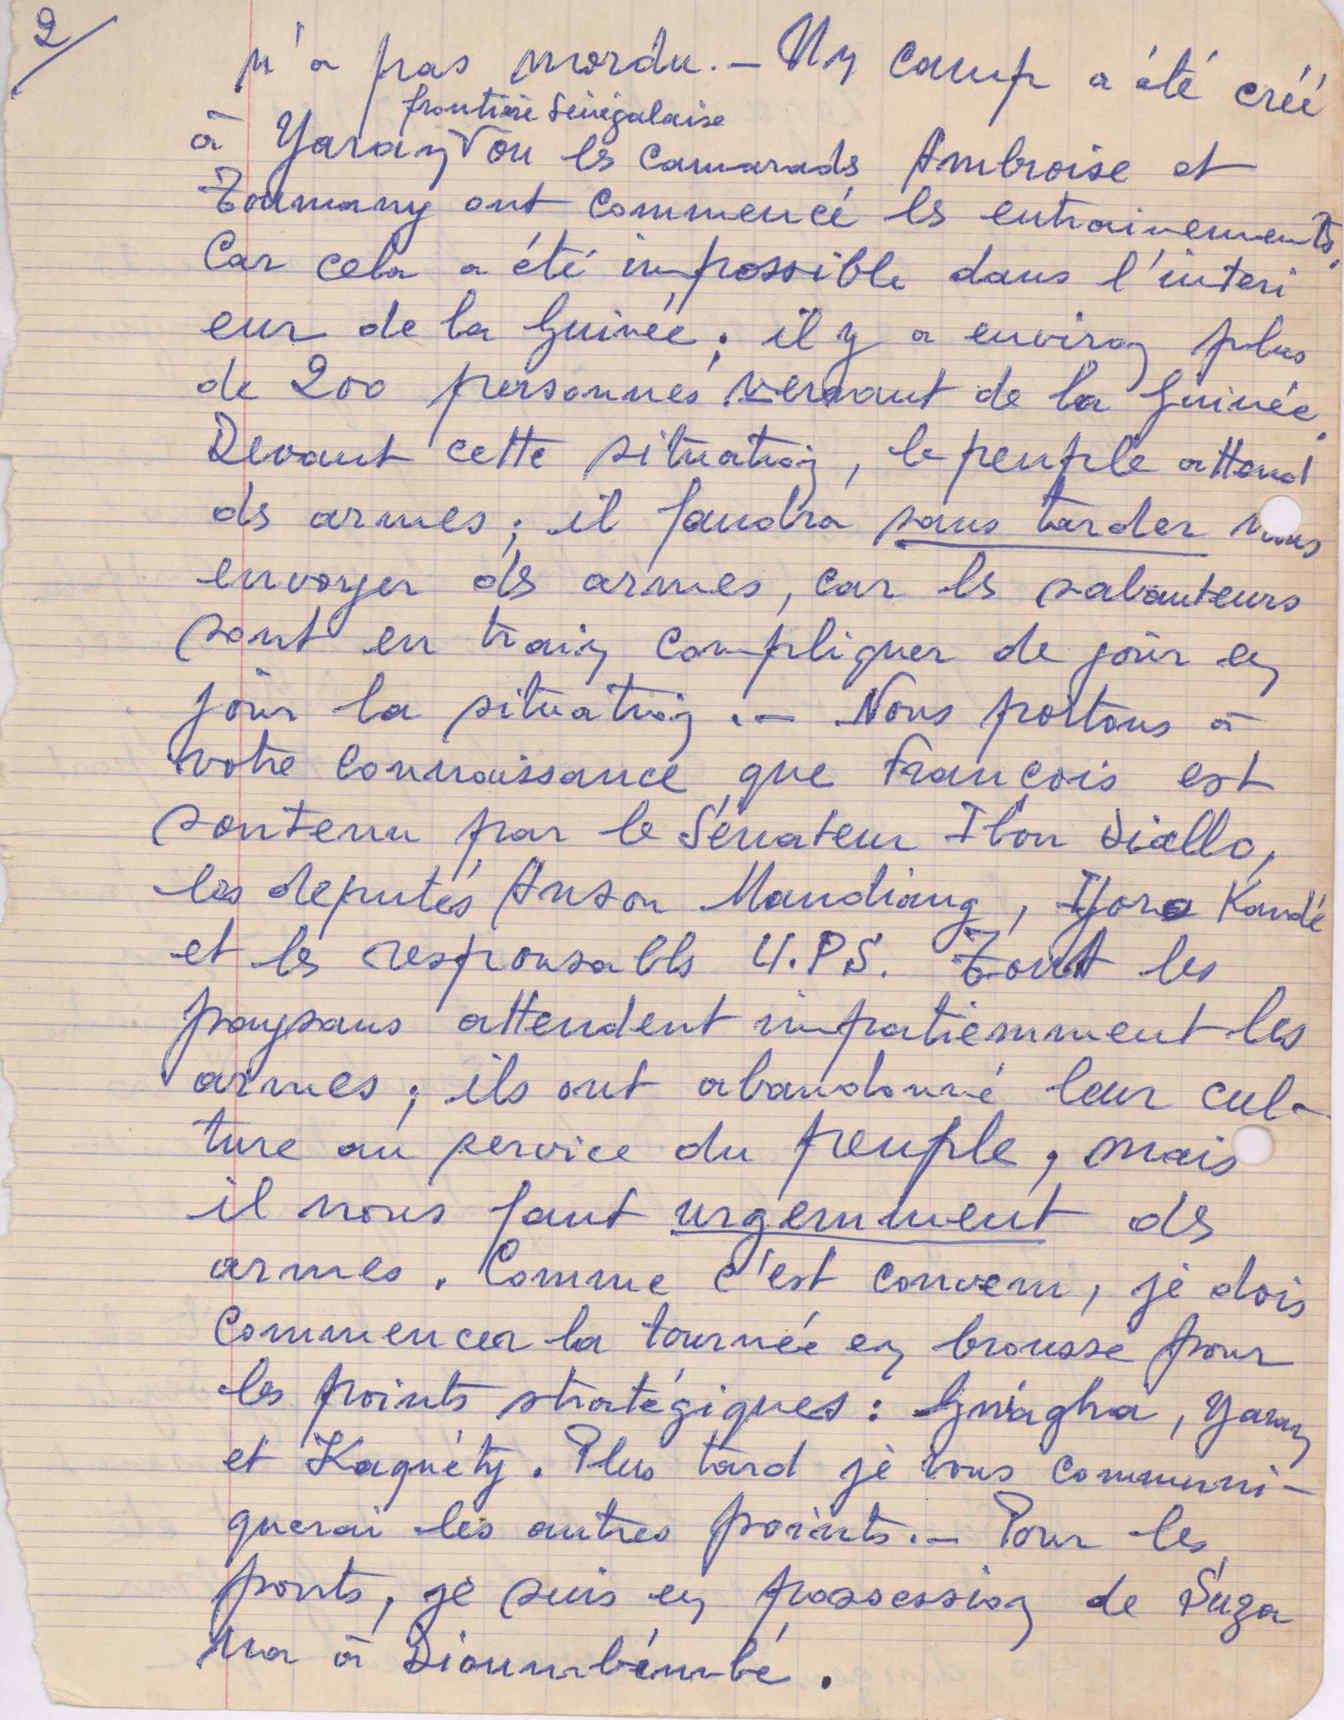 2/
n'a pas mordu. — Un camp a été créé
frontière Sénégalaise
à Yaran où les camarads Ambroise et
Toumany ont commencé les entrainements.
Car cela a été impossible dans l'interi
eur de la Guinée ; il y a environ plus
de 200 personnes venant de la Guinée.
Devant cette situation, le peuple attend
ds armes ; il faudra sans tarder nous
envoyer ds armes, car les saboteurs
sont en train compliquer de jour en
jour la situation. — Nous portons à
votre connaissance que François est
soutenu par le Sénateur Ibou Diallo,
les deputés Ansou Mandiang, Yoro Kandé
et les responsabls U.P.S. Tout les
paysans attendent impatiemment les
armes ; ils ont abandonné leur cul-
ture au service du peuple, mais
il nous faut urgemment ds
armes. Comme c'est convenu, je dois
commencer la tournée en brousse pour
les points stratégiques : , Yaran
et . Plus tard je vous communi-
querai les autres points. — Pour les
ponts, je suis en possession de Suza
na à Dioumbémbé.